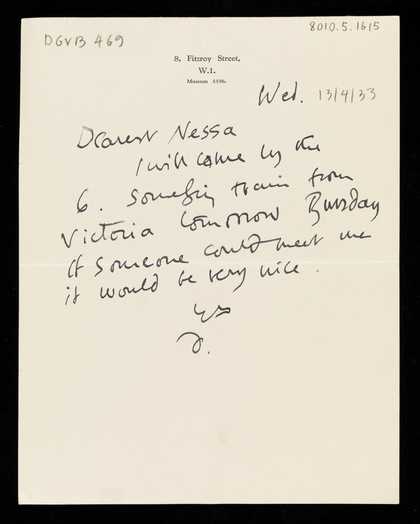 DGVB 469
8010.5.1615
8, Fitzroy Street,
W.1.
Museum
Wed. 13/4/33
Dearest Nessa
I will come by the
6. something train from
Victoria tomorrow Thursday
If someone could meet me
it would be very nice.
Yrs
D.